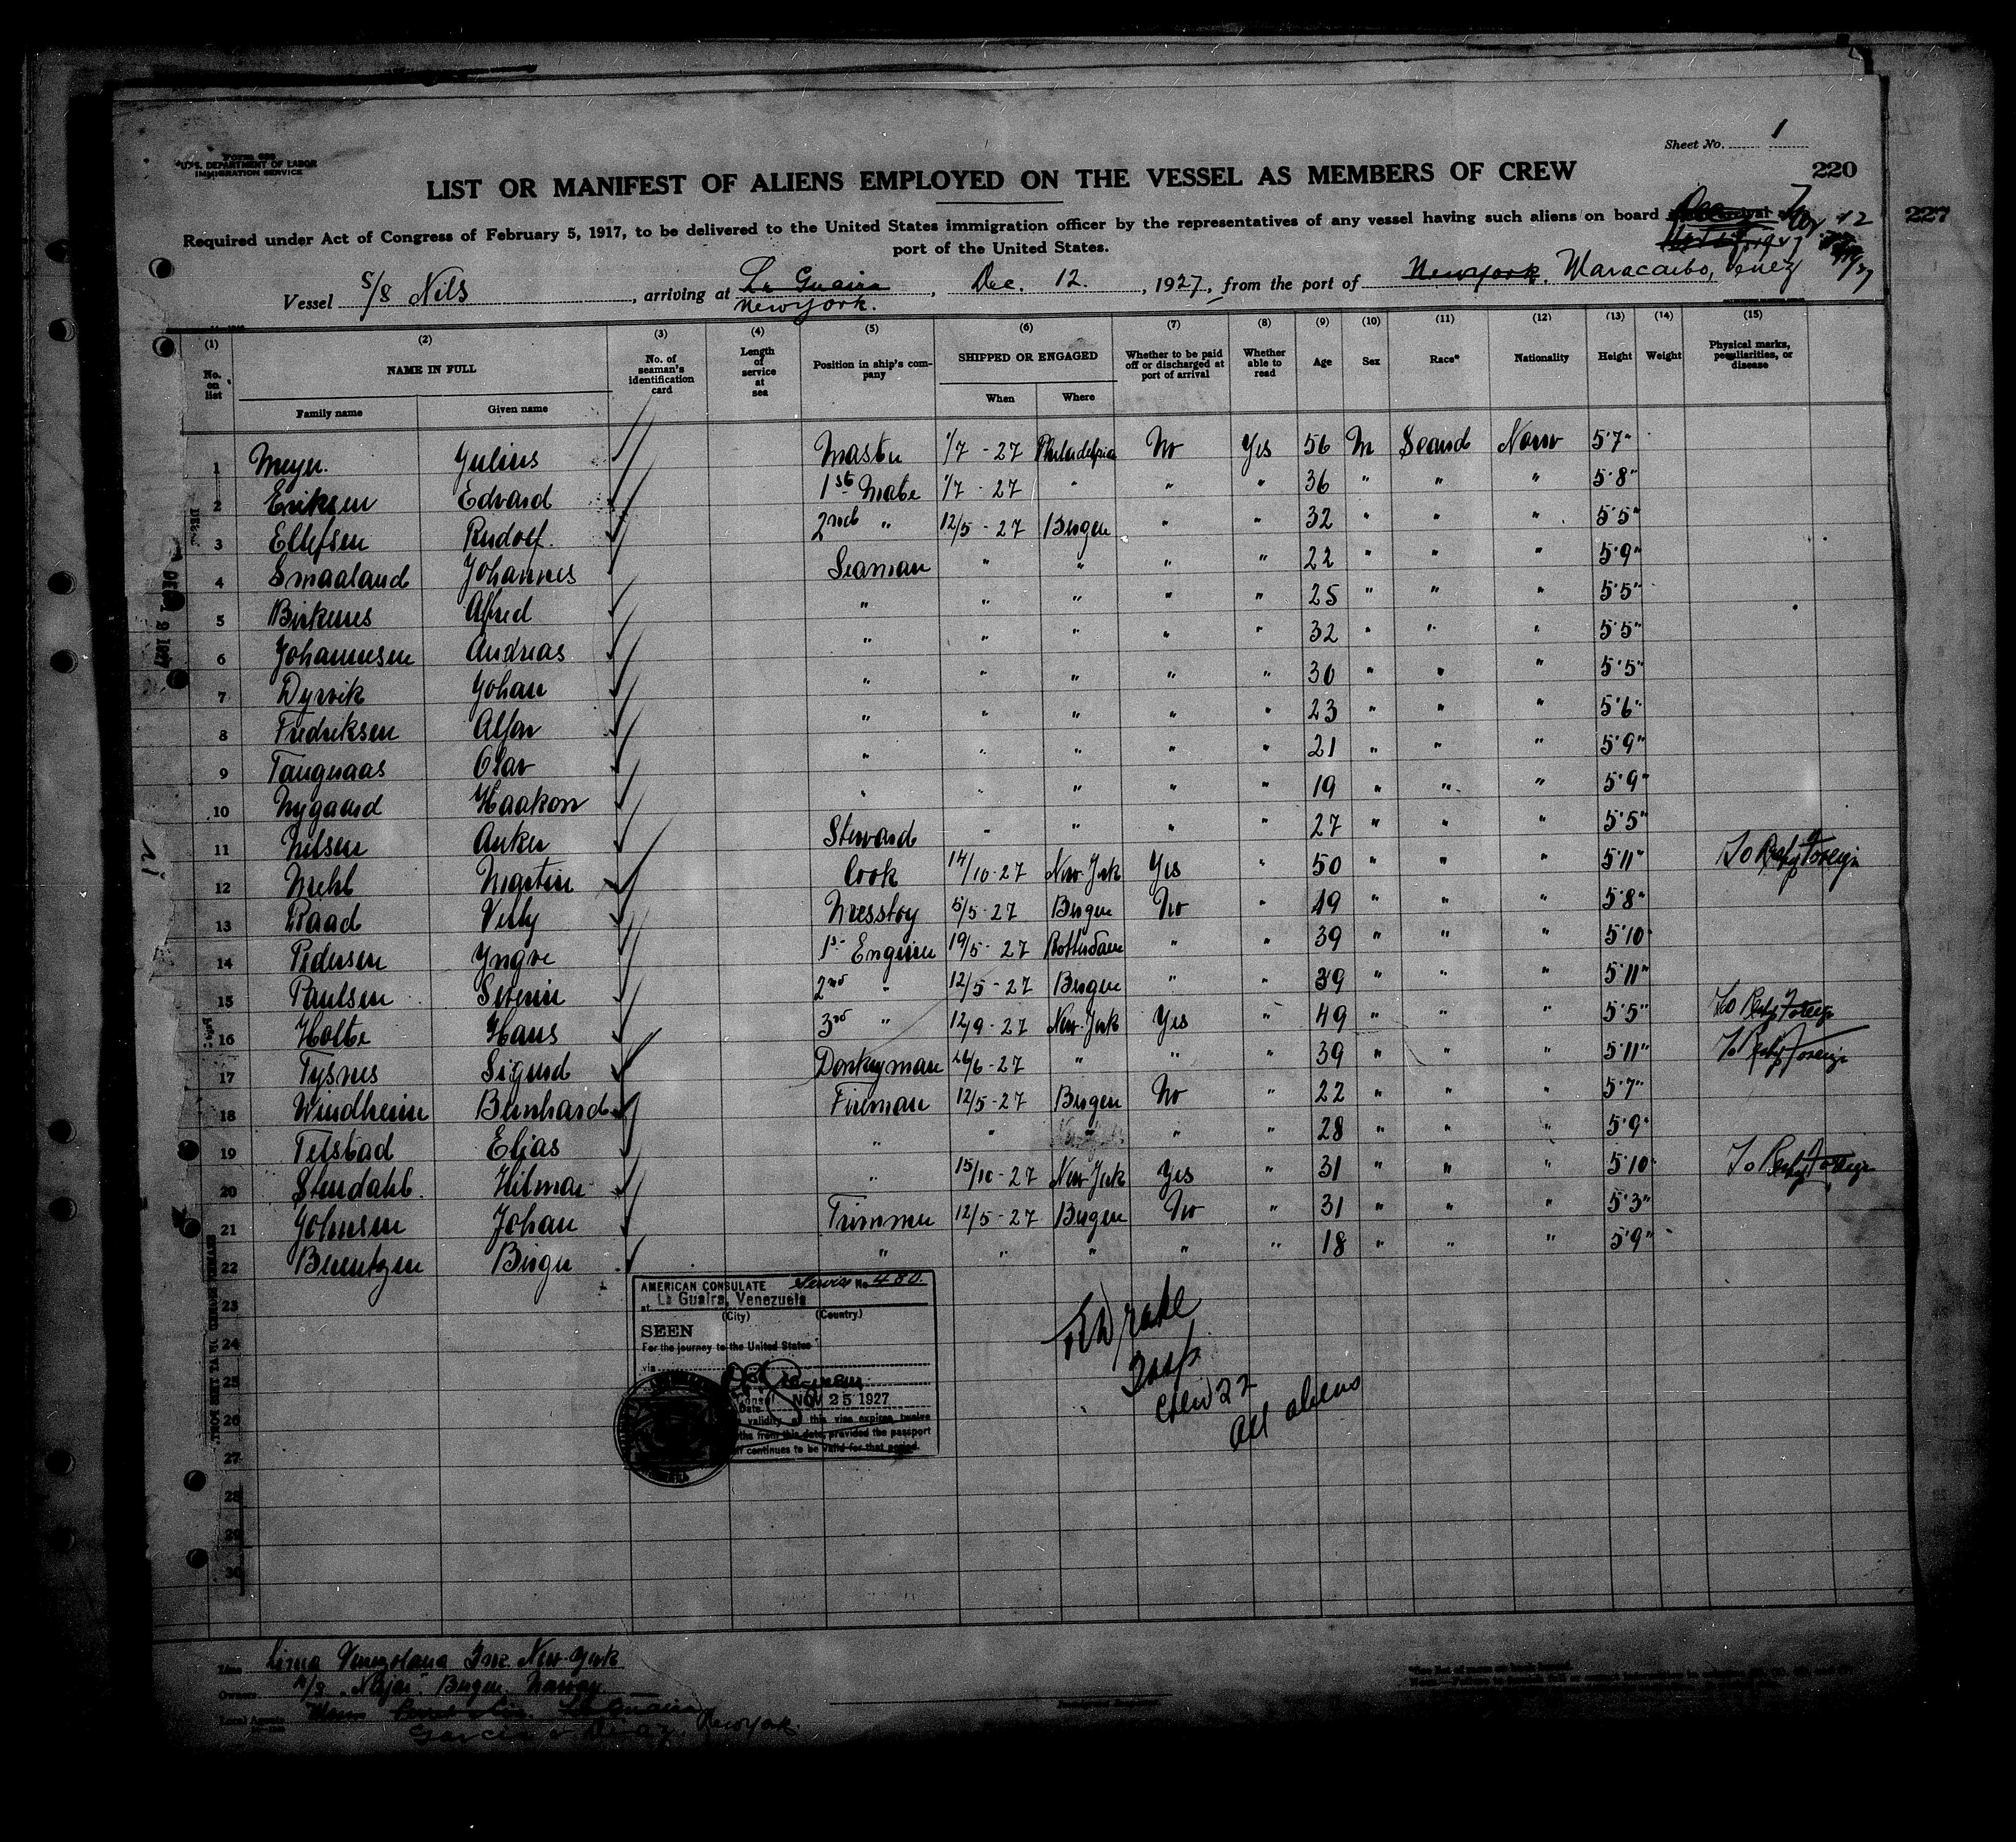 Sheet No. 1
Form 689
U.S. DEPARTMENT OF LABOR
IMMIGRATION SERVICE
220
LIST OR MANIFEST OF ALIENS EMPLOYED ON THE VESSEL AS MEMBERS OF CREW
227
Required under Act of Congress of February 5, 1917, to be delivered to the United States immigration officer by the representatives of any vessel having such aliens on board
port of the United States.
Vessel S/S Nils, arriving at La Guaira New York., Dec. 12., 1927, from the port of New York. Maracaibo, Venez
(1) (2) (3) (4) (5) (6) (7) (8) (9) (10) (11) (12) (13) (14) (15)
No. on list NAME IN FULL No. of seaman's identification card Length of service at sea Position in ship's company SHIPPED OR ENGAGED Whether to be paid off or discharged at port of arrival Whether able to read Age Sex Race* Nationality Height Weight Physical marks, peculiarities, or disease
Family name Given name When Where
1 Meyer. Julius Master 1/7 - 27 Philadelphia No Yes 56 M Scand Norw 5'7"
2 Eriksen Edvard 1st Mate 1/7 - 27 " " " 36 " " " 5'8"
3 Ellefsen Rudolf. 2nd " 12/5 - 27 Bergen " " 32 " " " 5'5"
4 Smaaland Johannes Seaman " " " " 22 " " " 5'9"
5 Birkenes Alfred " " " " " 25 " " " 5'5"
6 Johannesen Andreas " " " " " 32 " " " 5'5"
7 Dyrvik Johan " " " " " 30 " " " 5'5"
8 Fredriksen Alfon " " " " " 23 " " " 5'6"
9 Tangnaas Olav " " " " " 21 " " " 5'9"
10 Nygaard Haakon " " " " " 19 " " " 5'9"
11 Nilsen Anker Steward " " " " 27 " " " 5'5"
12 Mehl Martin Cook 14/10-27 New York Yes " 50 " " " 5'11" To Reship Foreign
13 Raad Villy Messboy 5/5 - 27 Bergen No " 19 " " " 5'8"
14 Pedersen Yngve 1st Engineer 19/5 - 27 Rotterdam " " 39 " " " 5'10"
15 Paulsen Severin 2nd " 12/5 - 27 Bergen " " 39 " " " 5'11"
16 Holte Hans 3rd " 12/9 - 27 New York Yes " 49 " " " 5'5" To Reship Foreign
17 Tysnes Sigurd Donkeyman 26/6-27 " " " 39 " " " 5'11" To Reship Foreign
18 Windheim Bernhard Fireman 12/5-27 Bergen No " 22 " " " 5'7"
19 Telstad Elias " " " " " 28 " " " 5'9"
20 Stendahl. Hilmar " 15/10-27 New York Yes " 31 " " " 5'10" To Reship Foreign
21 Johnsen Johan Trimmer 12/5 - 27 Bergen No " 31 " " " 5'3"
22 Berentzen Birger " " " " " 18 " " " 5'9"
23
24
25
26
27
28
29
30
AMERICAN CONSULATE Service No 480.
at La Guaira, Venezuela
(City) (Country)
SEEN
For the journey to the United States
via
Consul
Date NOV 25 1927
validity of this visa expires twelve
months from this date, provided the passport
continues to be valid for that period.
Drake
Insp
Crew 22
all aliens
DEC 12 1927
Line Linea Venezolana Inc. New York
Owners A/S "Major" Bergen Norway
Local Agents La Guaira
Garcia & Diaz, New York.